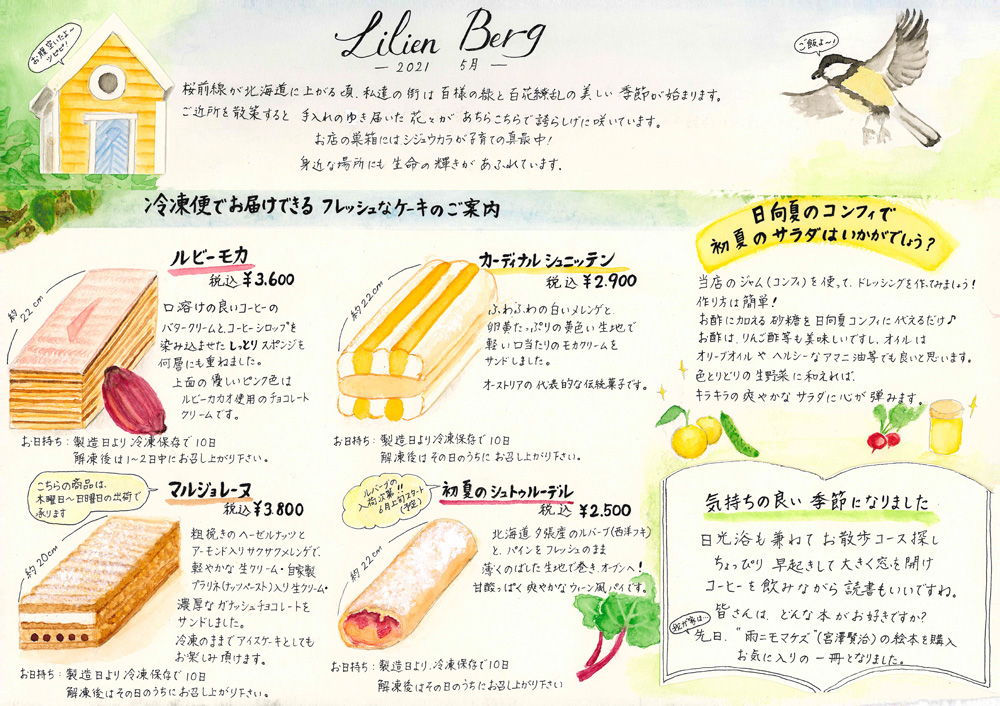 Lilien Berg
— 2021 5月 —
お腹空いたよ〜
ツピピ!
ご飯よ〜!
桜前線が北海道に上がる頃、私達の街は百様の緑と百花繚乱の美しい季節が始まります。
ご近所を散策すると 手入れのゆき届いた花々が あちらこちらで誇らしげに咲いています。
お店の巣箱にはシジュウカラが子育ての真最中!
身近な場所にも生命の輝きがあふれています。
冷凍便でお届けできる フレッシュなケーキのご案内
ルビーモカ
税込 ¥3.600
約22cm
口溶けの良いコーヒーの
バタークリームと、コーヒーシロップを
染み込ませた しっとりスポンジを
何層にも重ねました。
上面の優しいピンク色は
ルビーカカオ使用のチョコレート
クリームです。
お日持ち:製造日より冷凍保存で10日
解凍後は1〜2日中にお召し上がり下さい。
カーディナルシュニッテン
税込 ¥2.900
約22cm
ふわふわの白いメレンゲと、
卵黄たっぷりの黄色い生地で
軽い口当たりのモカクリームを
サンドしました。
オーストリアの代表的な伝統菓子です。
お日持ち:製造日より冷凍保存で10日
解凍後はその日のうちにお召し上がり下さい。
こちらの商品は、
木曜日〜日曜日の出荷で
承ります
マルジョレーヌ
税込 ¥3.800
約20cm
粗挽きのヘーゼルナッツと
アーモンド入りサクサクメレンゲで、
軽やかな生クリーム・自家製
プラリネ(ナッツペースト)入り生クリーム・
濃厚なガナッシュチョコレートを
サンドしました。
冷凍のままでアイスケーキとしても
お楽しみ頂けます。
お日持ち:製造日より、冷凍保存で10日
解凍後はその日のうちにお召し上がり下さい。
ルバーブの
入荷次第!!
6月上旬スタート
(予定)
初夏のシュトゥルーデル
税込 ¥2.500
約22cm
北海道夕張産のルバーブ(西洋フキ)
と、パインをフレッシュのまま
薄くのばした生地で巻き、オーブンへ!
甘酸っぱく爽やかなウィーン風パイです。
お日持ち:製造日より、冷凍保存で10日
解凍後はその日のうちにお召し上がり下さい
日向夏のコンフィで
初夏のサラダはいかがでしょう?
当店のジャム(コンフィ)を使って、ドレッシングを作ってみましょう!
作り方は簡単!
お酢に加える砂糖を日向夏コンフィに代えるだけ♪
お酢は、りんご酢等も美味しいですし、オイルは
オリーブオイルやヘルシーなアマニ油等でも良いと思います。
色とりどりの生野菜に和えれば、
キラキラの爽やかなサラダに心が弾みます。
気持ちの良い 季節になりました
日光浴も兼ねてお散歩コース探し
ちょっぴり 早起きして大きく窓を開け
コーヒーを飲みながら読書もいいですね。
皆さんは、どんな本がお好きですか?
我が家は…
先日、"雨ニモマケズ"(宮澤賢治)の絵本を購入
お気に入りの一冊となりました。